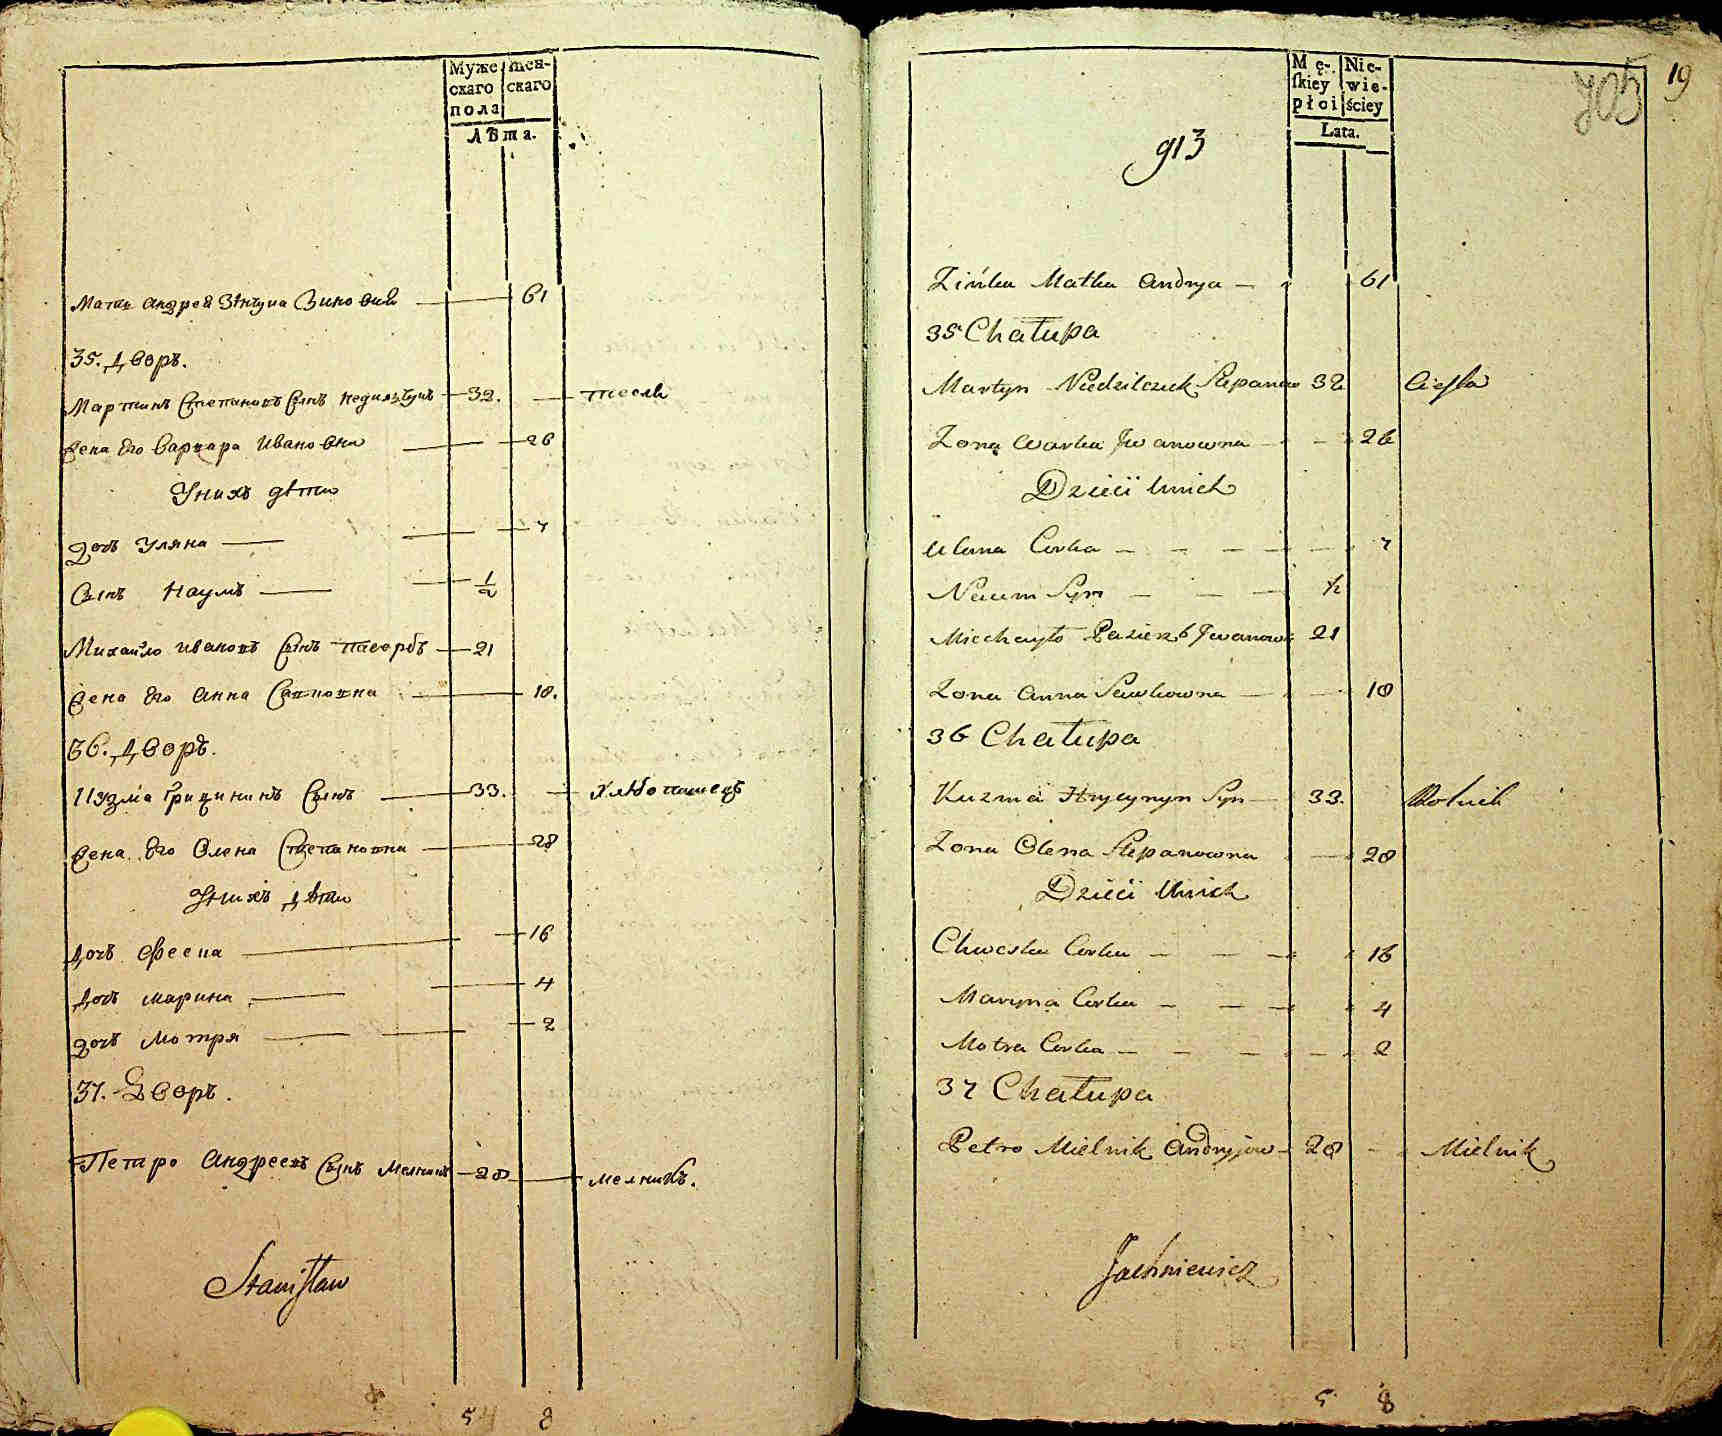 Муже
скаго
пола
жен-
скаго
Лѣта.
Мать Андрея Зятя Зиновия 61
35. Дворъ.
Мартинъ Степановъ Сынъ Недилчукъ 32. тесля
Жена Его Варвара Ивановна 26
У нихъ дѣти
Дочь Уляна 7
Сынъ Наумъ 1/2
Михайло Ивановъ Сынъ пасербъ 21
Жена Его Анна 18.
36. Дворъ.
Кузма Грицининъ Сынъ 33. хлѣбопашецъ
Жена Его Олена Степановна 28
У нихъ дѣти
Дочь Фесца 16
Дочь Марина 4
Дочь Мотря 2
37. Дворъ.
Петро Андреевъ Сынъ Мелникъ 28 мелникъ.
Stanisław
54 8
Mę-
skiey
płci
Nie-
wie-
ściey
Lata.
705
19
913
Zińka Matka Andrya 61
35 Chałupa
Martyn Niedzilczuk Stepanow 32 Cieśla
Zona Warka Iwanowna 26
Dzieci Unich
Ulana Corka 7
Naum Syn 1/2
Miechayło Pasierzb Iwanow 21
Zona Anna Sawkowna 18
36 Chałupa
Kuzma Hrycynyn Syn 33. Rolnik
Zona Olena Stepanowna 28
Dzieci Unich
Chweska Corka 16
Maryna Corka 4
Motra Corka 2
37 Chałupa
Petro Mielnik Andryjow 28 Mielnik
Jachniewicz
5 8